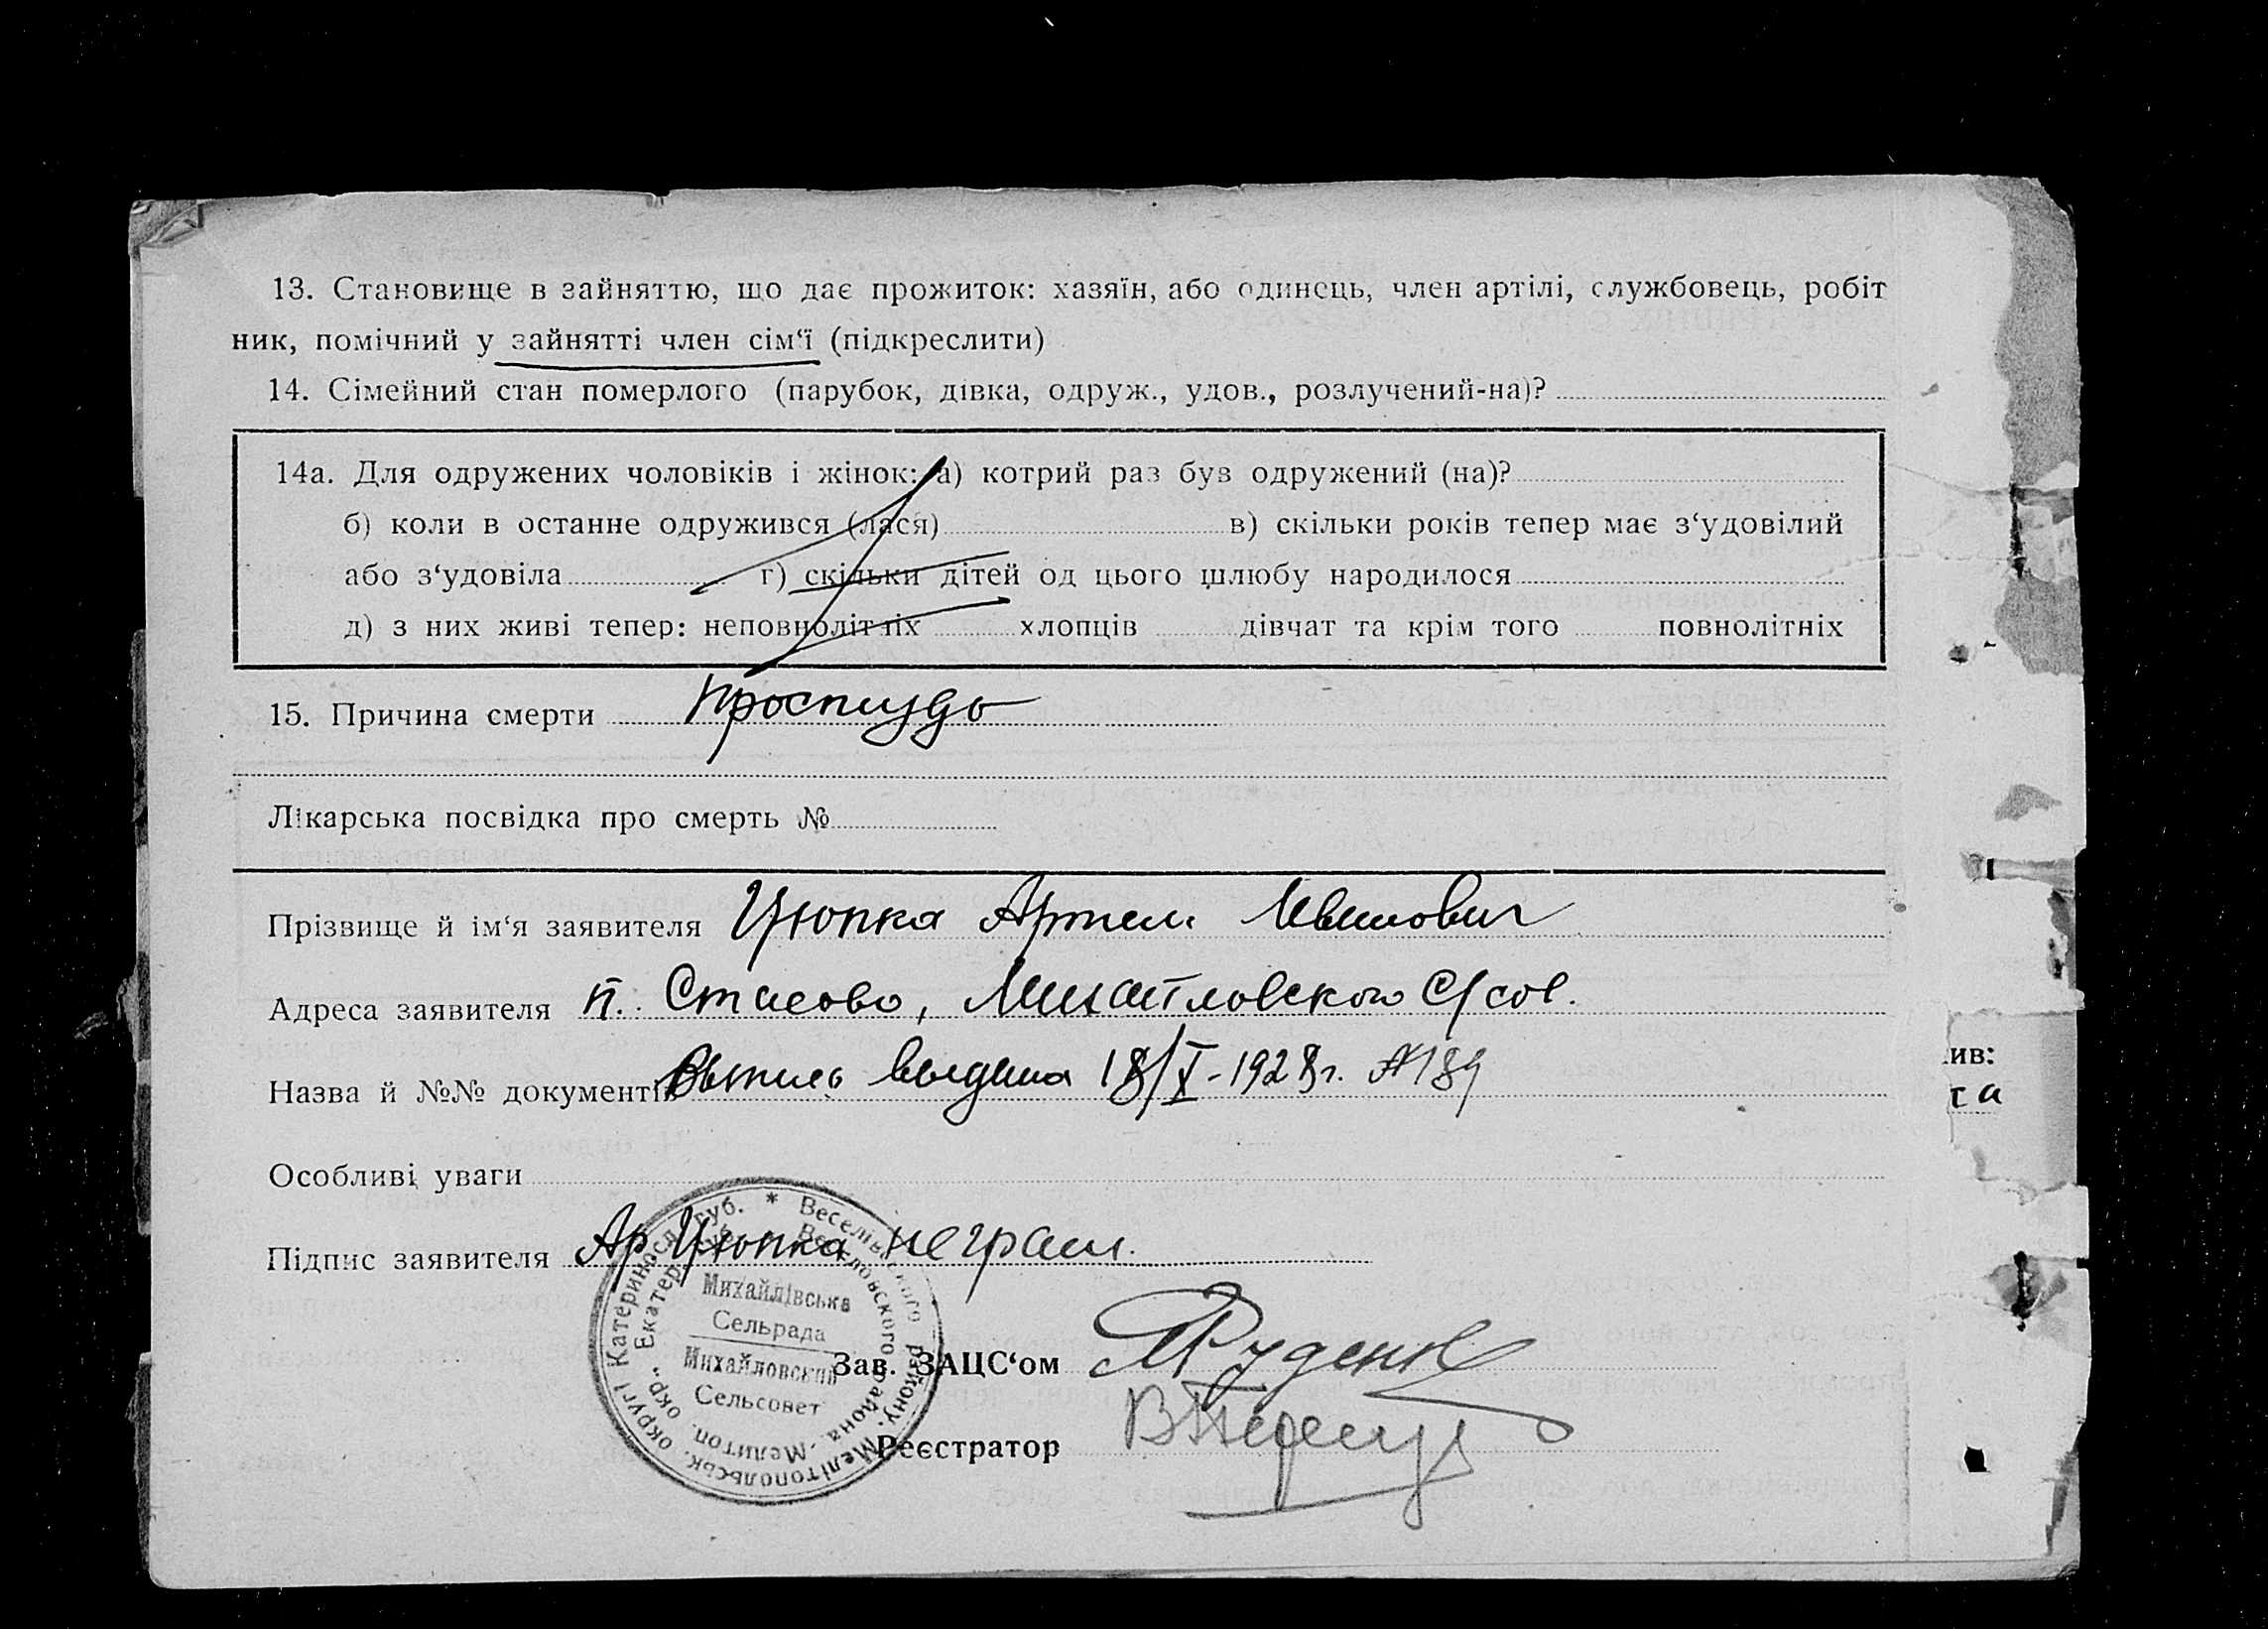 13. Становище в зайняттю, що дає прожиток: хазяїн, або одинець, член артілі, службовець, робіт
ник, помічний у зайнятті член сім‘ї (підкреслити)
14. Сімейний стан померлого (парубок, дівка, одруж., удов., розлучений-на)?
14а. Для одружених чоловіків і жінок: а) котрий раз був одружений (на)?
б) коли в останне одружився (лася) в) скільки років тепер має з‘удовілий
або з‘удовіла г) скільки дітей од цього шлюбу народилося
д) з них живі тепер: неповнолітніх хлопців дівчат та крім того повнолітніх
15. Причина смерти простуда
Лікарська посвідка про смерть №
Прізвище й ім‘я заявителя Цюпка Артем Иванович
Адреса заявителя п. Стасово, Михайловского С/сов.
Назва й №№ документів Выпись выдана 18/X-1928г. №189
Особливі уваги
Підпис заявителя Ар Цюпка неграм.
Катериносл. губ. * Веселівського району. Мелітопольськ. округі
Екатер. губ. Веселовского района. Мелитоп. окр.
Михайлівська
Сельрада
Михайловский
Сельсовет
Зав. ЗАЦС‘ом Руденко
Реєстратор
ив:
та